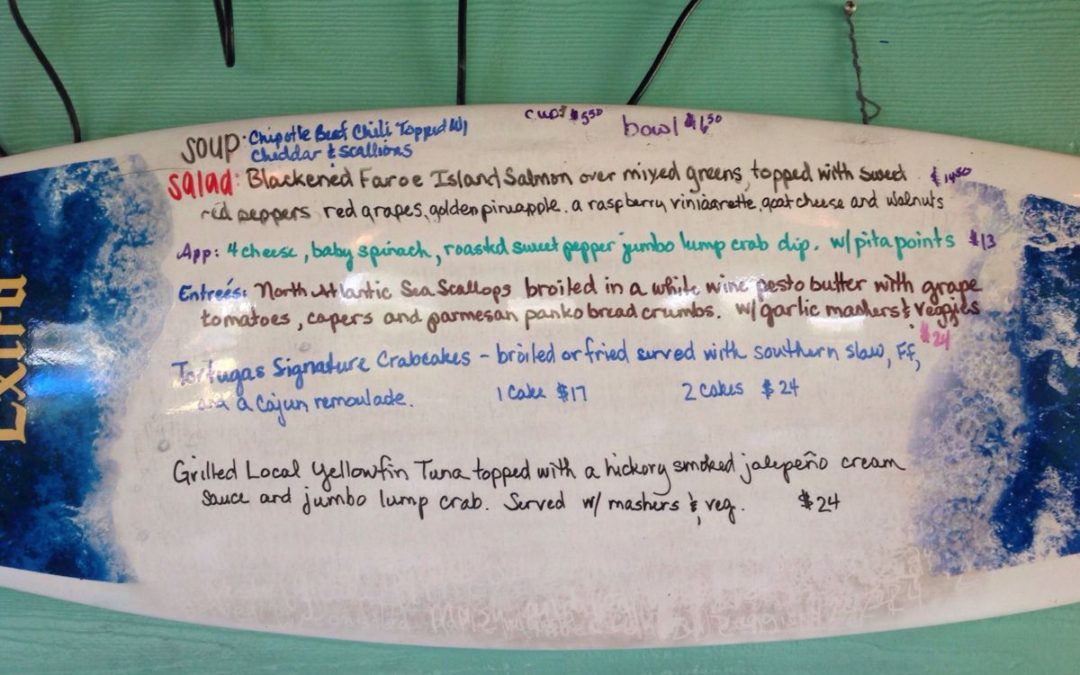 cup $5.50 bowl $6.50
Soup: Chipotle Beef Chili Topped W/
Cheddar & Scallions
Salad: Blackened Faroe Island Salmon over mixed greens, topped with sweet $14.50
red peppers red grapes, golden pineapple. a raspberry viniagrette, goat cheese and walnuts
App: 4 cheese, baby spinach, roasted sweet pepper jumbo lump crab dip. w/ pita points $13
Entreés: North Atlantic Sea Scallops broiled in a white wine pesto butter with grape
tomatoes, capers and parmesan panko bread crumbs. w/ garlic mashers & Veggies
$24
Tortugas Signature Crabcakes - broiled or fried served with southern slaw, FF,
and a Cajun remoulade. 1 Cake $17 2 cakes $24
Grilled Local Yellowfin Tuna topped with a hickory smoked jalepeño cream
Sauce and jumbo lump crab. Served w/ mashers & veg. $24
Extra